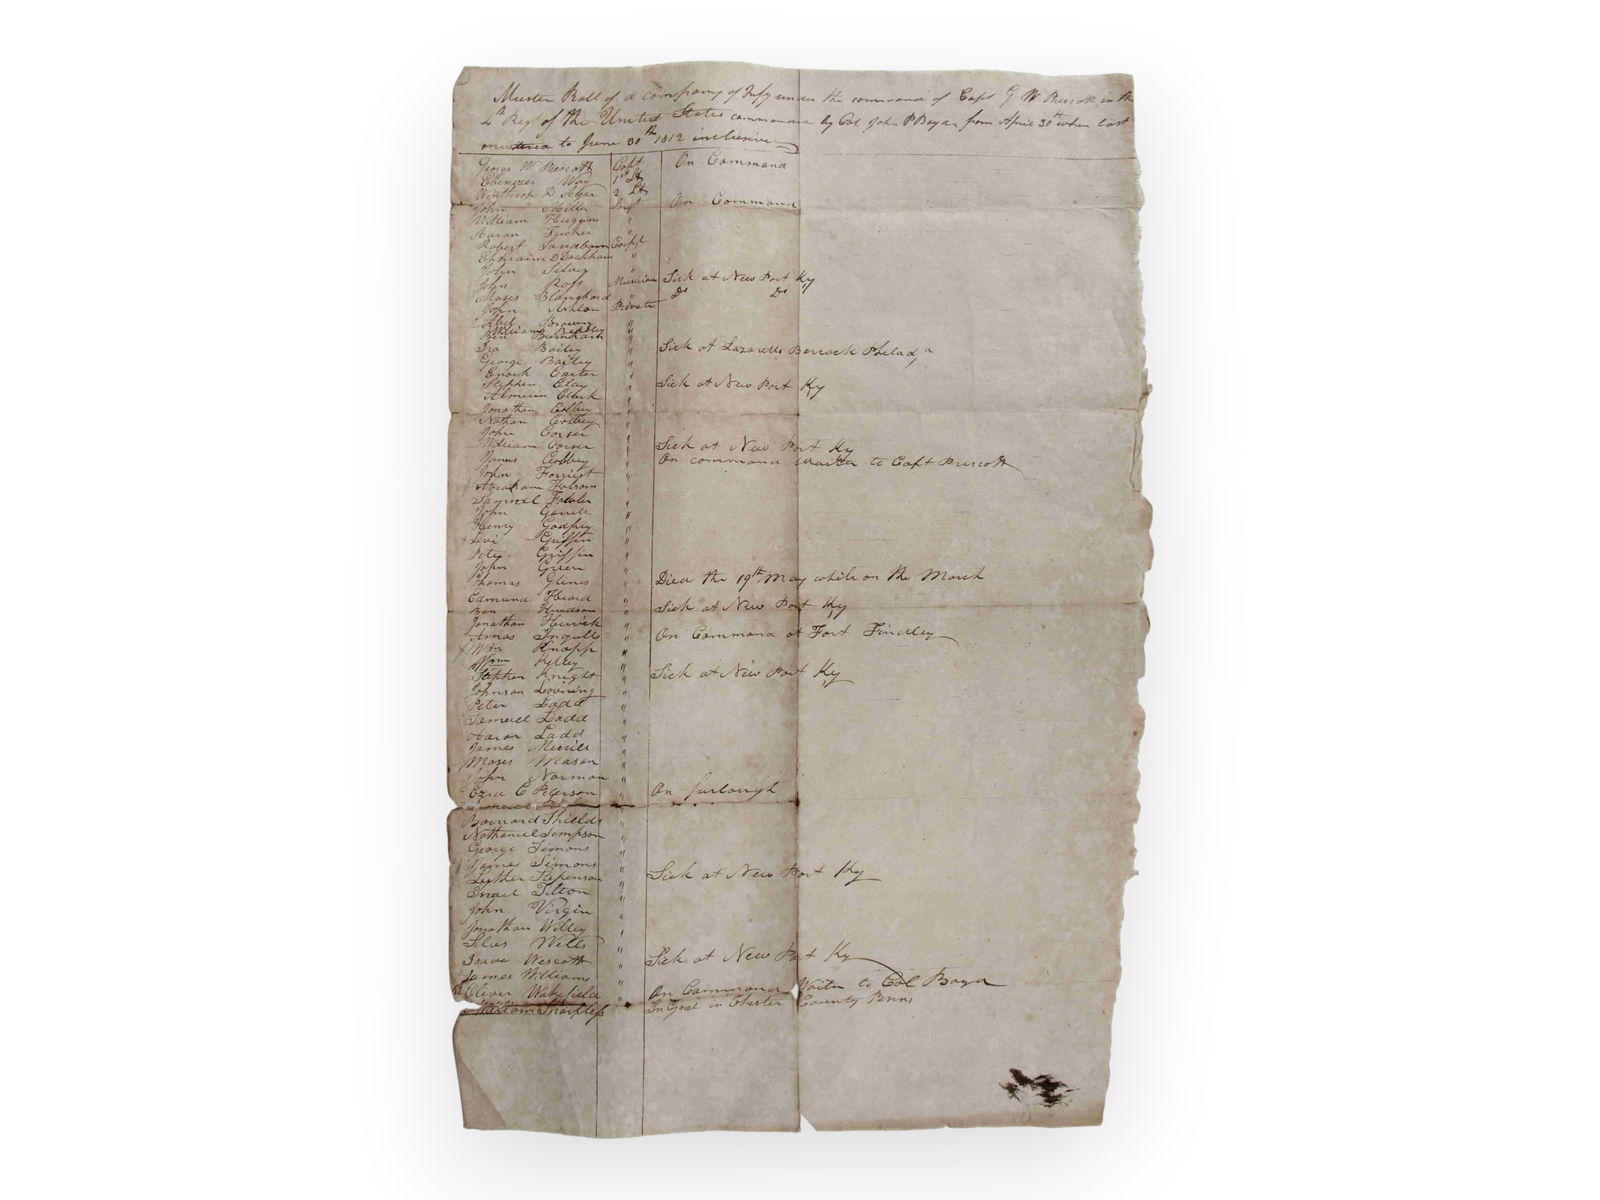 Muster Roll of a company of Infy under the command of Capt G W Prescott in the
4th Regt of the United States commanded by Col John P Boyd from April 30th when last
mustered to June 30th 1812 inclusive
George W Prescott Capt On Command
Ebenezer Way 1st Lt
Winthrop D Ager 2 Lt
John Miller Sergt On Command
William Huggins "
Aaron Tucker "
Robert Sandborn Corpl
Ephraim D Dockham "
John Silver "
John Ross Musician Sick at New Port Ky
Moses Blanchard " Do Do
John Ashton Private
Abel Brown "
William Bedley "
Ben Burnham "
Ira Bailey " Sick at Lazaretto Berrack Philada
George Bailey "
Enoch Carter "
Stephen Clay " Sick at New Port Ky
Almerin Clark "
Jonathan Colbey "
Nathan Colbey "
John Corser "
William Corser " Sick at New Port Ky
James Cobbey " On command waiter to Capt Prescott
John Forrist "
Abraham Folsom "
Samuel Fowler "
John Gerrell "
Henry Godfrey "
Levi Griffin "
Peter Griffin "
John Green "
Thomas Glines " Died the 19th May while on the March
Edmund Heard "
Ben Hudson " Sick at New Port Ky
Jonathan Herrick "
Amos Ingulls " On Command at Fort Findley
Wm Knapp "
Wm Kelley "
Stephen Knight " Sick at New Port Ky
Johnson Lovering "
Peter Ladd "
Samuel Ladd "
Aaron Ladd "
James Merrill "
Moses Mason "
John Norman "
Ezra C Peterson " On furlough
Barnard Shields "
Nathaniel Simpson "
George Simons "
James Simons "
Luther Stepenson " Sick at New Port Ky
Israel Tilton "
John Virgin "
Jonathan Willey "
Silas Wells "
Isaac Wescott " Sick at New Port Ky
James William "
Oliver Wakefield " On Command Waiter to Col Boyd
William Sharpless " In Goal in Chester County Penn